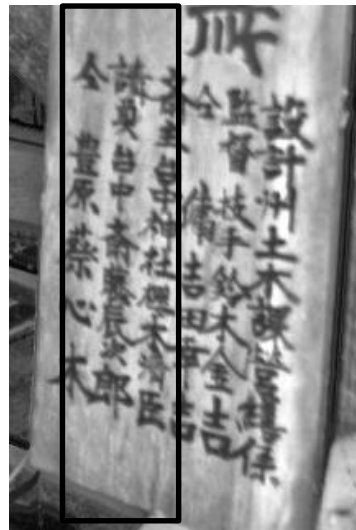 設計州土木課營繕係
監督技手鈴木金吉
仝 備吉田幸吉
齋主台中神社櫻木濟臣
請負台中斎藤辰次郎
仝 豊原蔡心木